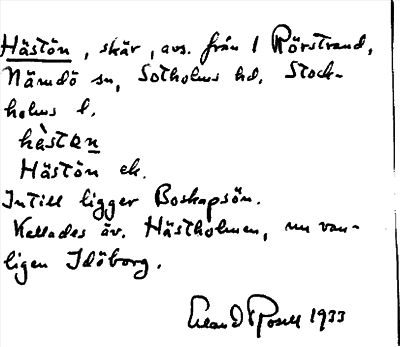 Hästön, skär, avs. från 1 Rörstrand,
Nämdö sn, Sotholms hd. Stock-
holms l.
hàstɑn
Hästön ek.
Intill ligger Boskapsön.
Kallades äv. Hästholmen, nu van-
ligen Idöborg.
Rosell 1933